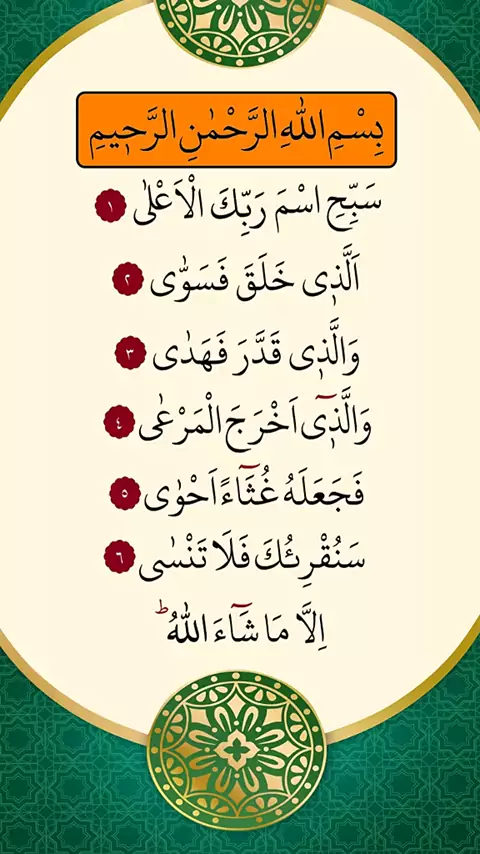 بِسْمِ اللهِ الرَّحْمٰنِ الرَّحٖيمِ
سَبِّحِ اسْمَ رَبِّكَ الْاَعْلٰى ١
اَلَّذٖى خَلَقَ فَسَوّٰى ٢
وَالَّذٖى قَدَّرَ فَهَدٰى ٣
وَالَّذٖٓى اَخْرَجَ الْمَرْعٰى ٤
فَجَعَلَهُ غُثَٓاءً اَحْوٰى ٥
سَنُقْرِئُكَ فَلَا تَنْسٰى ٦
اِلَّا مَا شَٓاءَ اللهُ ؕ